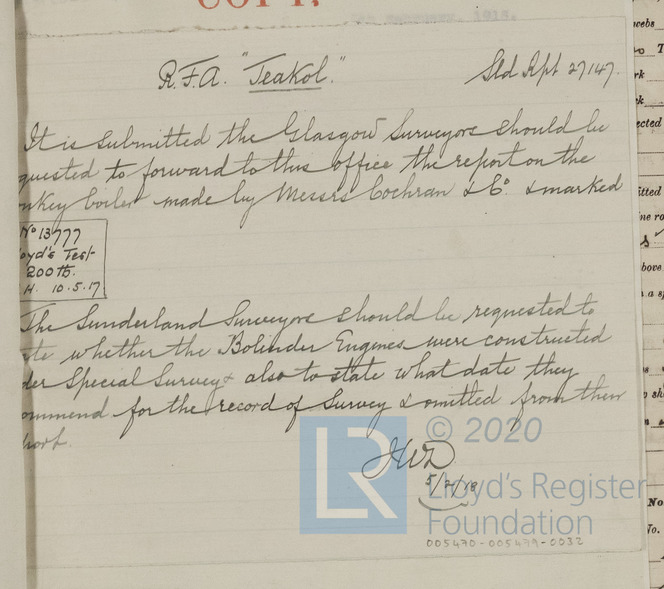 COPY.
1918.
R.F.A. "Teakol."
Sld Rpt 27147.
It is submitted the Glasgow Surveyors should be
quested to forward to this office the report on the
nkey boiler made by Messrs Cochran & Co. & marked
No 13777
oyd's Test
200 lb.
H. 10.5.17
The Sunderland Surveyors should be requested to
ate whether the Bolinder Engines were constructed
der Special Survey & also to state what date they
ommend for the record of Survey & omitted from their
port.
JWD
5/2/18
© 2020
LR
Lloyd's Register
Foundation
005470-005479-0032